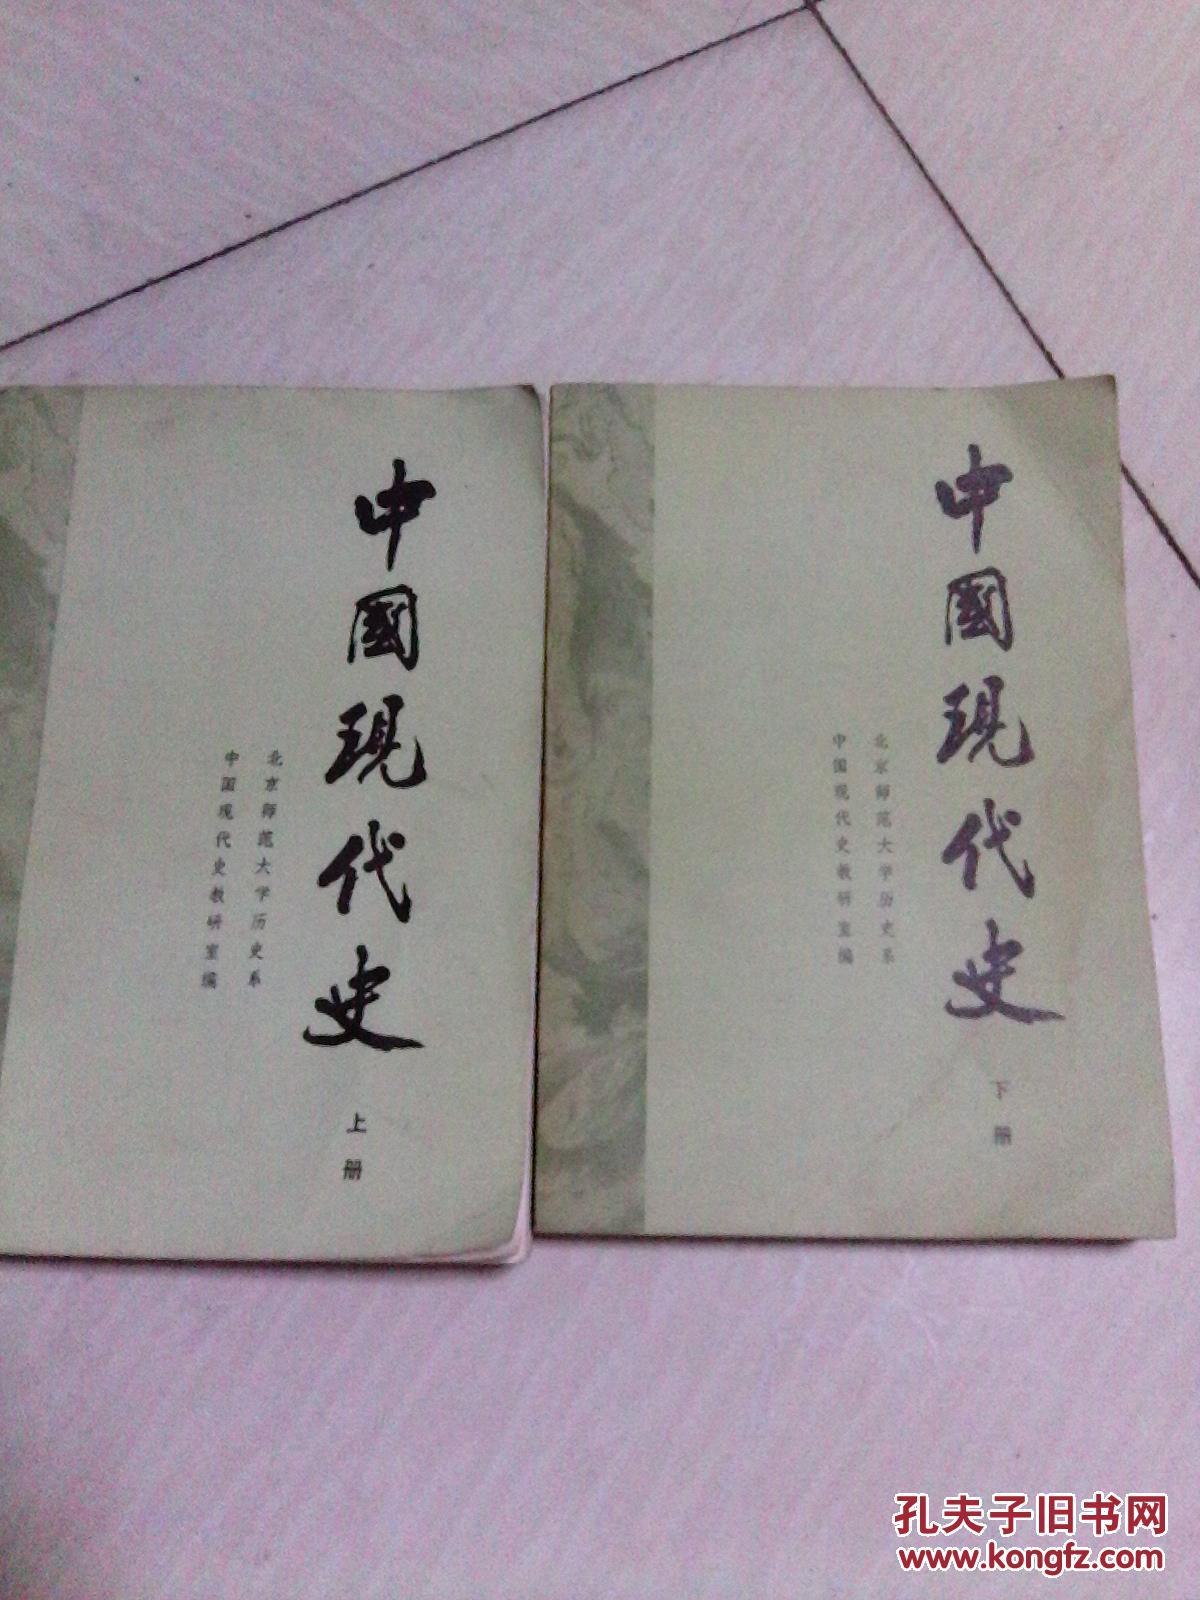 中國現代史
上册
北京师范大学历史系
中国现代史教研室编
中國現代史
下册
北京师范大学历史系
中国现代史教研室编
孔夫子旧书网
www.kongfz.com